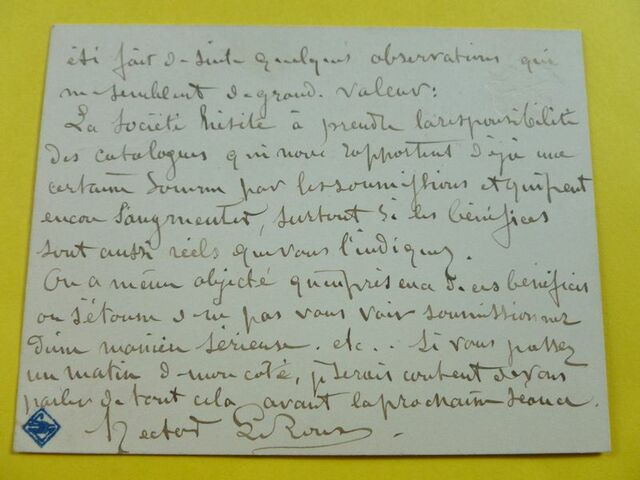 et j'ai fait de suite quelques observations qui
me semblent de grande valeur :
La Société hésite à prendre la responsibilité
des catalogues qui nous rapportent déjà une
certaine somme par les soumissions et qui peut
encore s'augmenter, surtout si les bénéfices
sont aussi réels que vous l'indiquez.
On a même objecté qu'en présence de ces bénéfices
on s'étonne de ne pas vous voir soumissionner
d'une manière sérieuse. etc.. Si vous passez
un matin de mon coté, je serais content de vous
parler de tout cela avant la prochaine séance.
Hector Le Roux